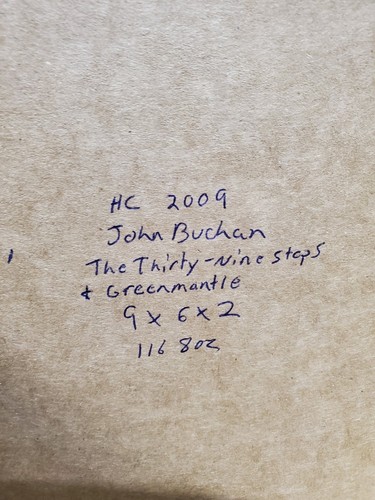 HC 2009
John Buchan
The Thirty-Nine Steps
& Greenmantle
9 x 6 x 2
1lb 8oz